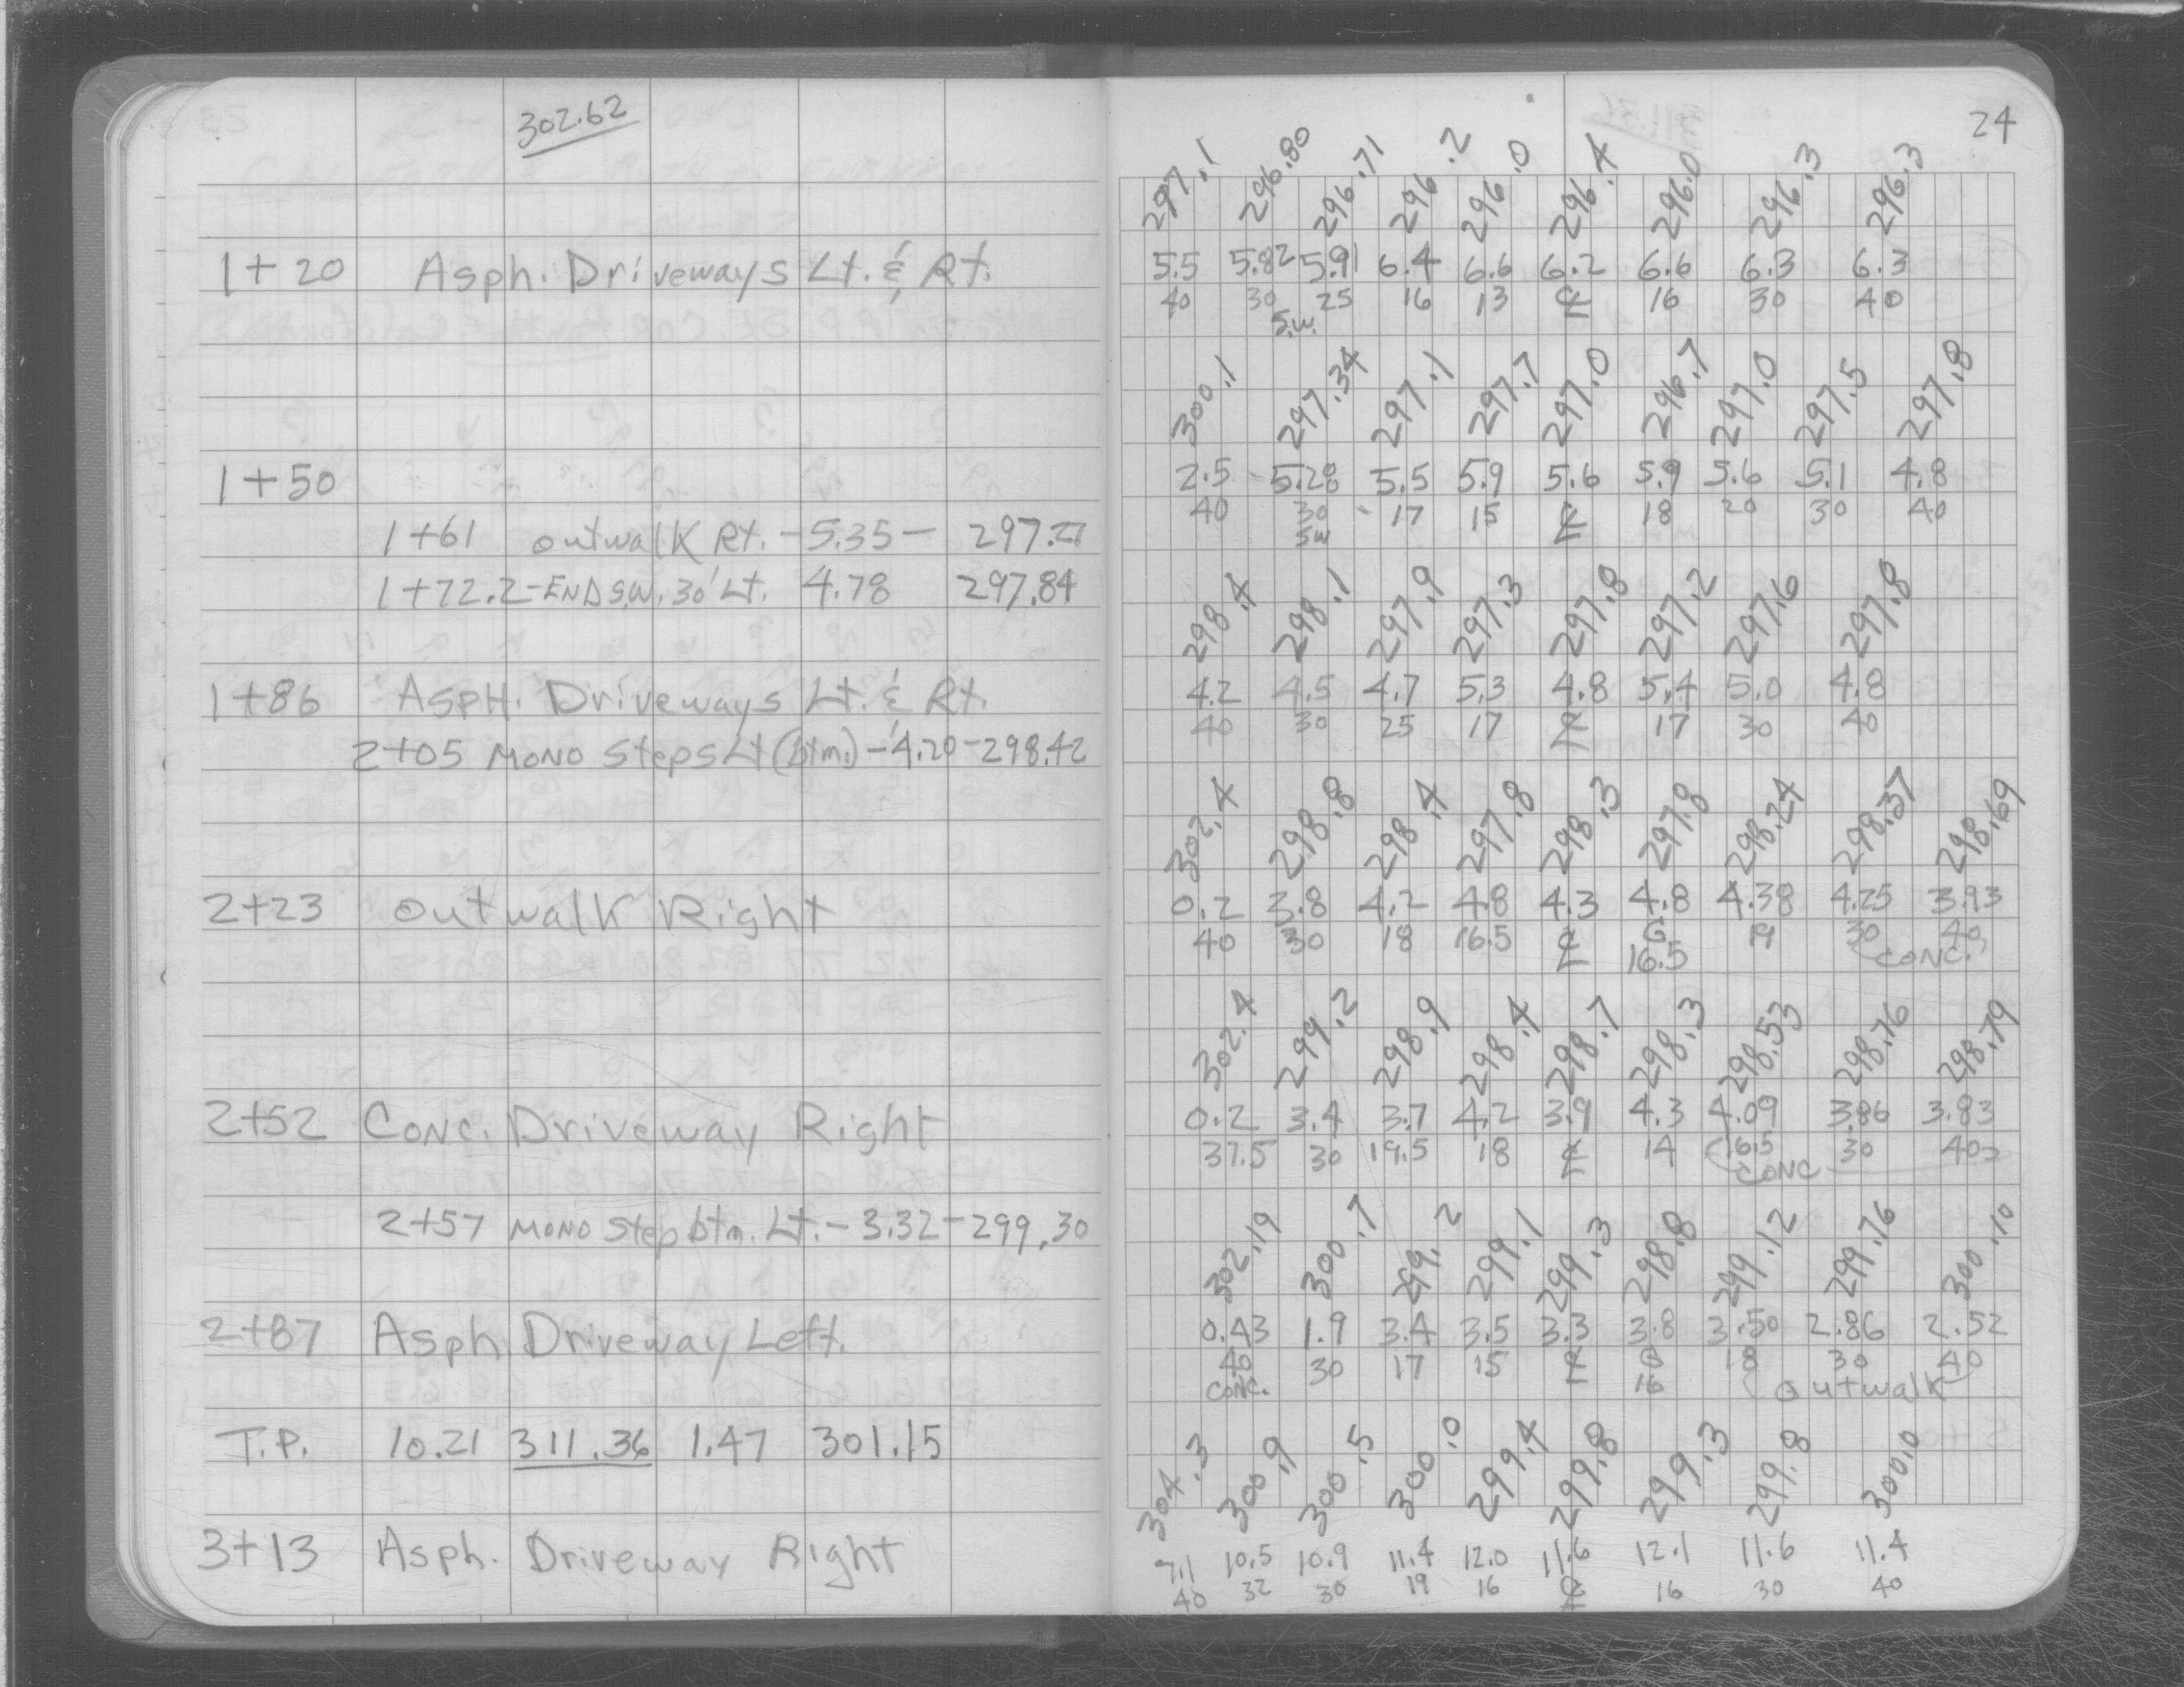 302.62
24
297.1 296.80 296.71 296.2 296.0 296.4 296.0 296.3 296.3
1+20 Asph. Driveways Lt. & Rt.
5.5 5.82 5.91 6.4 6.6 6.2 6.6 6.3 6.3
40 30 25 16 13 ℄ 16 30 40
S.W.
300.1 297.34 297.1 297.7 297.0 296.7 297.0 297.5 297.8
1+50
2.5 5.28 5.5 5.9 5.6 5.9 5.6 5.1 4.8
40 30 17 15 ℄ 18 20 30 40
SW
1+61 outwalk Rt. - 5.35 - 297.27
1+72.2 - END S.W. 30' Lt. 4.78 297.84
298.4 298.1 297.9 297.3 297.8 297.2 297.6 297.8
1+86 ASPH. Driveways Lt. & Rt.
4.2 4.5 4.7 5.3 4.8 5.4 5.0 4.8
40 30 25 17 ℄ 17 30 40
2+05 MONO Steps Lt (btm.) - 4.20 - 298.42
302.4 298.8 298.4 297.8 298.3 297.8 298.24 298.37 298.69
2+23 outwalk Right
0.2 3.8 4.2 4.8 4.3 4.8 4.38 4.25 3.93
40 30 18 16.5 ℄ G 19 30 40
16.5 CONC.
302.4 299.2 298.9 298.4 298.7 298.3 298.53 298.76 298.79
2+52 Conc. Driveway Right
0.2 3.4 3.7 4.2 3.9 4.3 4.09 3.86 3.83
37.5 30 19.5 18 ℄ 14 16.5 30 40
CONC
2+57 MONO Step btm. Lt. - 3.32 - 299.30
302.19 300.7 299.2 299.1 299.3 298.8 299.12 299.76 300.10
2+87 Asph Driveway Left.
0.43 1.9 3.4 3.5 3.3 3.8 3.50 2.86 2.52
40 30 17 15 ℄ G 18 30 40
CONC. 16 outwalk
T.P. 10.21 311.36 1.47 301.15
304.3 300.9 300.5 300.0 299.4 299.8 299.3 299.8 300.0
3+13 Asph. Driveway Right
7.1 10.5 10.9 11.4 12.0 11.6 12.1 11.6 11.4
40 32 30 19 16 ℄ 16 30 40